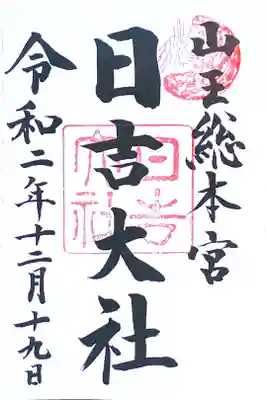 山王総本宮
日吉大社
令和二年十二月十九日